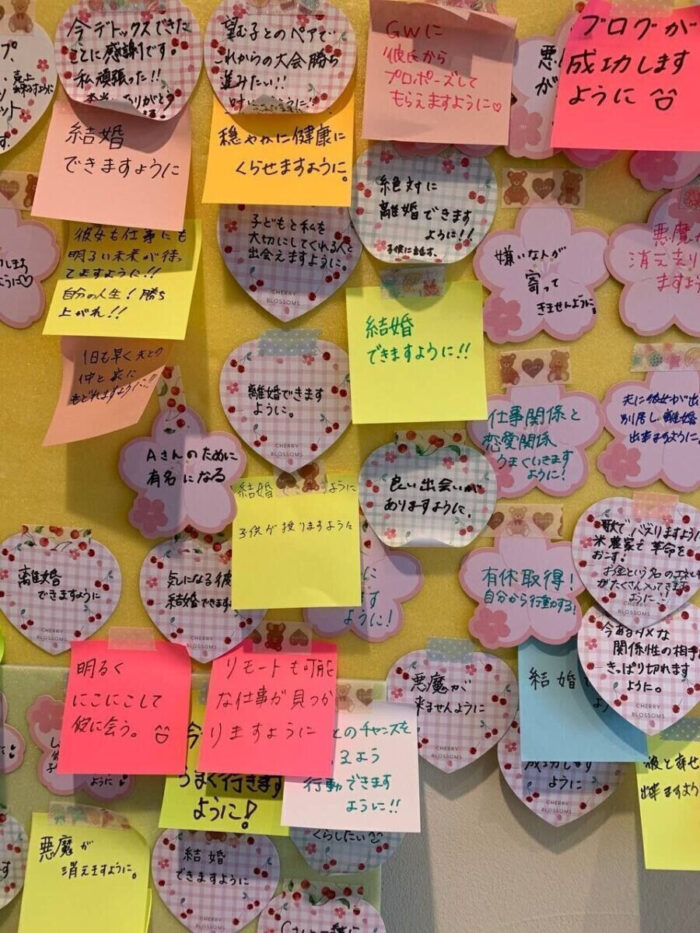 今デトックスできた
ことに感謝です。
私頑張った!!
望む子とのペアで
これからの大会勝ち
進みたい!!
GWに
彼氏から
プロポーズして
もらえますように♡
ブログが
成功します
ように
結婚
できますように
穏やかに健康に
くらせますように。
絶対に
離婚できます
ように!!
子どもと私を
大切にしてくれる人と
出会えますように。
CHERRY
BLOSSOMS
嫌いな人が
寄って
きませんように。
悪魔が
彼女も仕事にも
明るい未来が待っ
てますように!!
自分の人生!勝ち
上がれ!!
結婚
できますように!!
1日も早く夫との
離婚できます
ように。
CHERRY
BLOSSOMS
仕事関係と
恋愛関係
うまくいきます
ように!
Aさんのために
有名になる
良い出会いが
ありますように。
結婚 ように
子供が授りますように
離婚
できますように
CHERRY
BLOSSOMS
気になる彼
結婚できます
有休取得!
自分から行動する!
歌でバズりますように
米農家も革命を
おこす!
明るく
にこにこして
彼に会う。
リモートも可能
な仕事が見つか
りますように
悪魔が
来ませんように
CHERRY
BLOSSOMS
結婚
今あるダメな
関係性の相手
きっぱり切れます
ように。
CHERRY
BLOSSOMS
うまく行きます
ように!
とのチャンスを
るよう
行動できます
ように!!
成功します
ように
CHERRY
BLOSSOMS
彼と幸せ
出来ますよう
くらしたい
悪魔が
消えますように。
結婚
できますように
CHERRY
BLOSSOMS